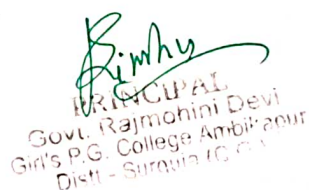 PRINCIPAL
Govt. Rajmohini Devi
Girl's P.G. College Ambikapur
Distt - Surguja (C.G.)